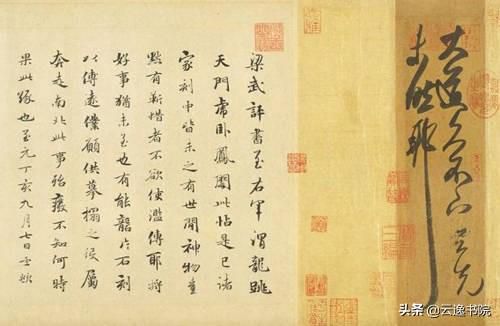 大道久不下與先
未然耶
梁武評書至右軍謂龍跳
天門虎卧鳳閣此帖是已諸
家刻中皆未之有世間神物豈
黙有靳惜者不欲使濫傳耶將
好事猶未至也有能龍於石刻
以傳遠僕願供摹搨之役屬
奔走南北此事殆癈不知何時
果此緣也至元丁亥九月七日孟頫
头条 @云逸书院